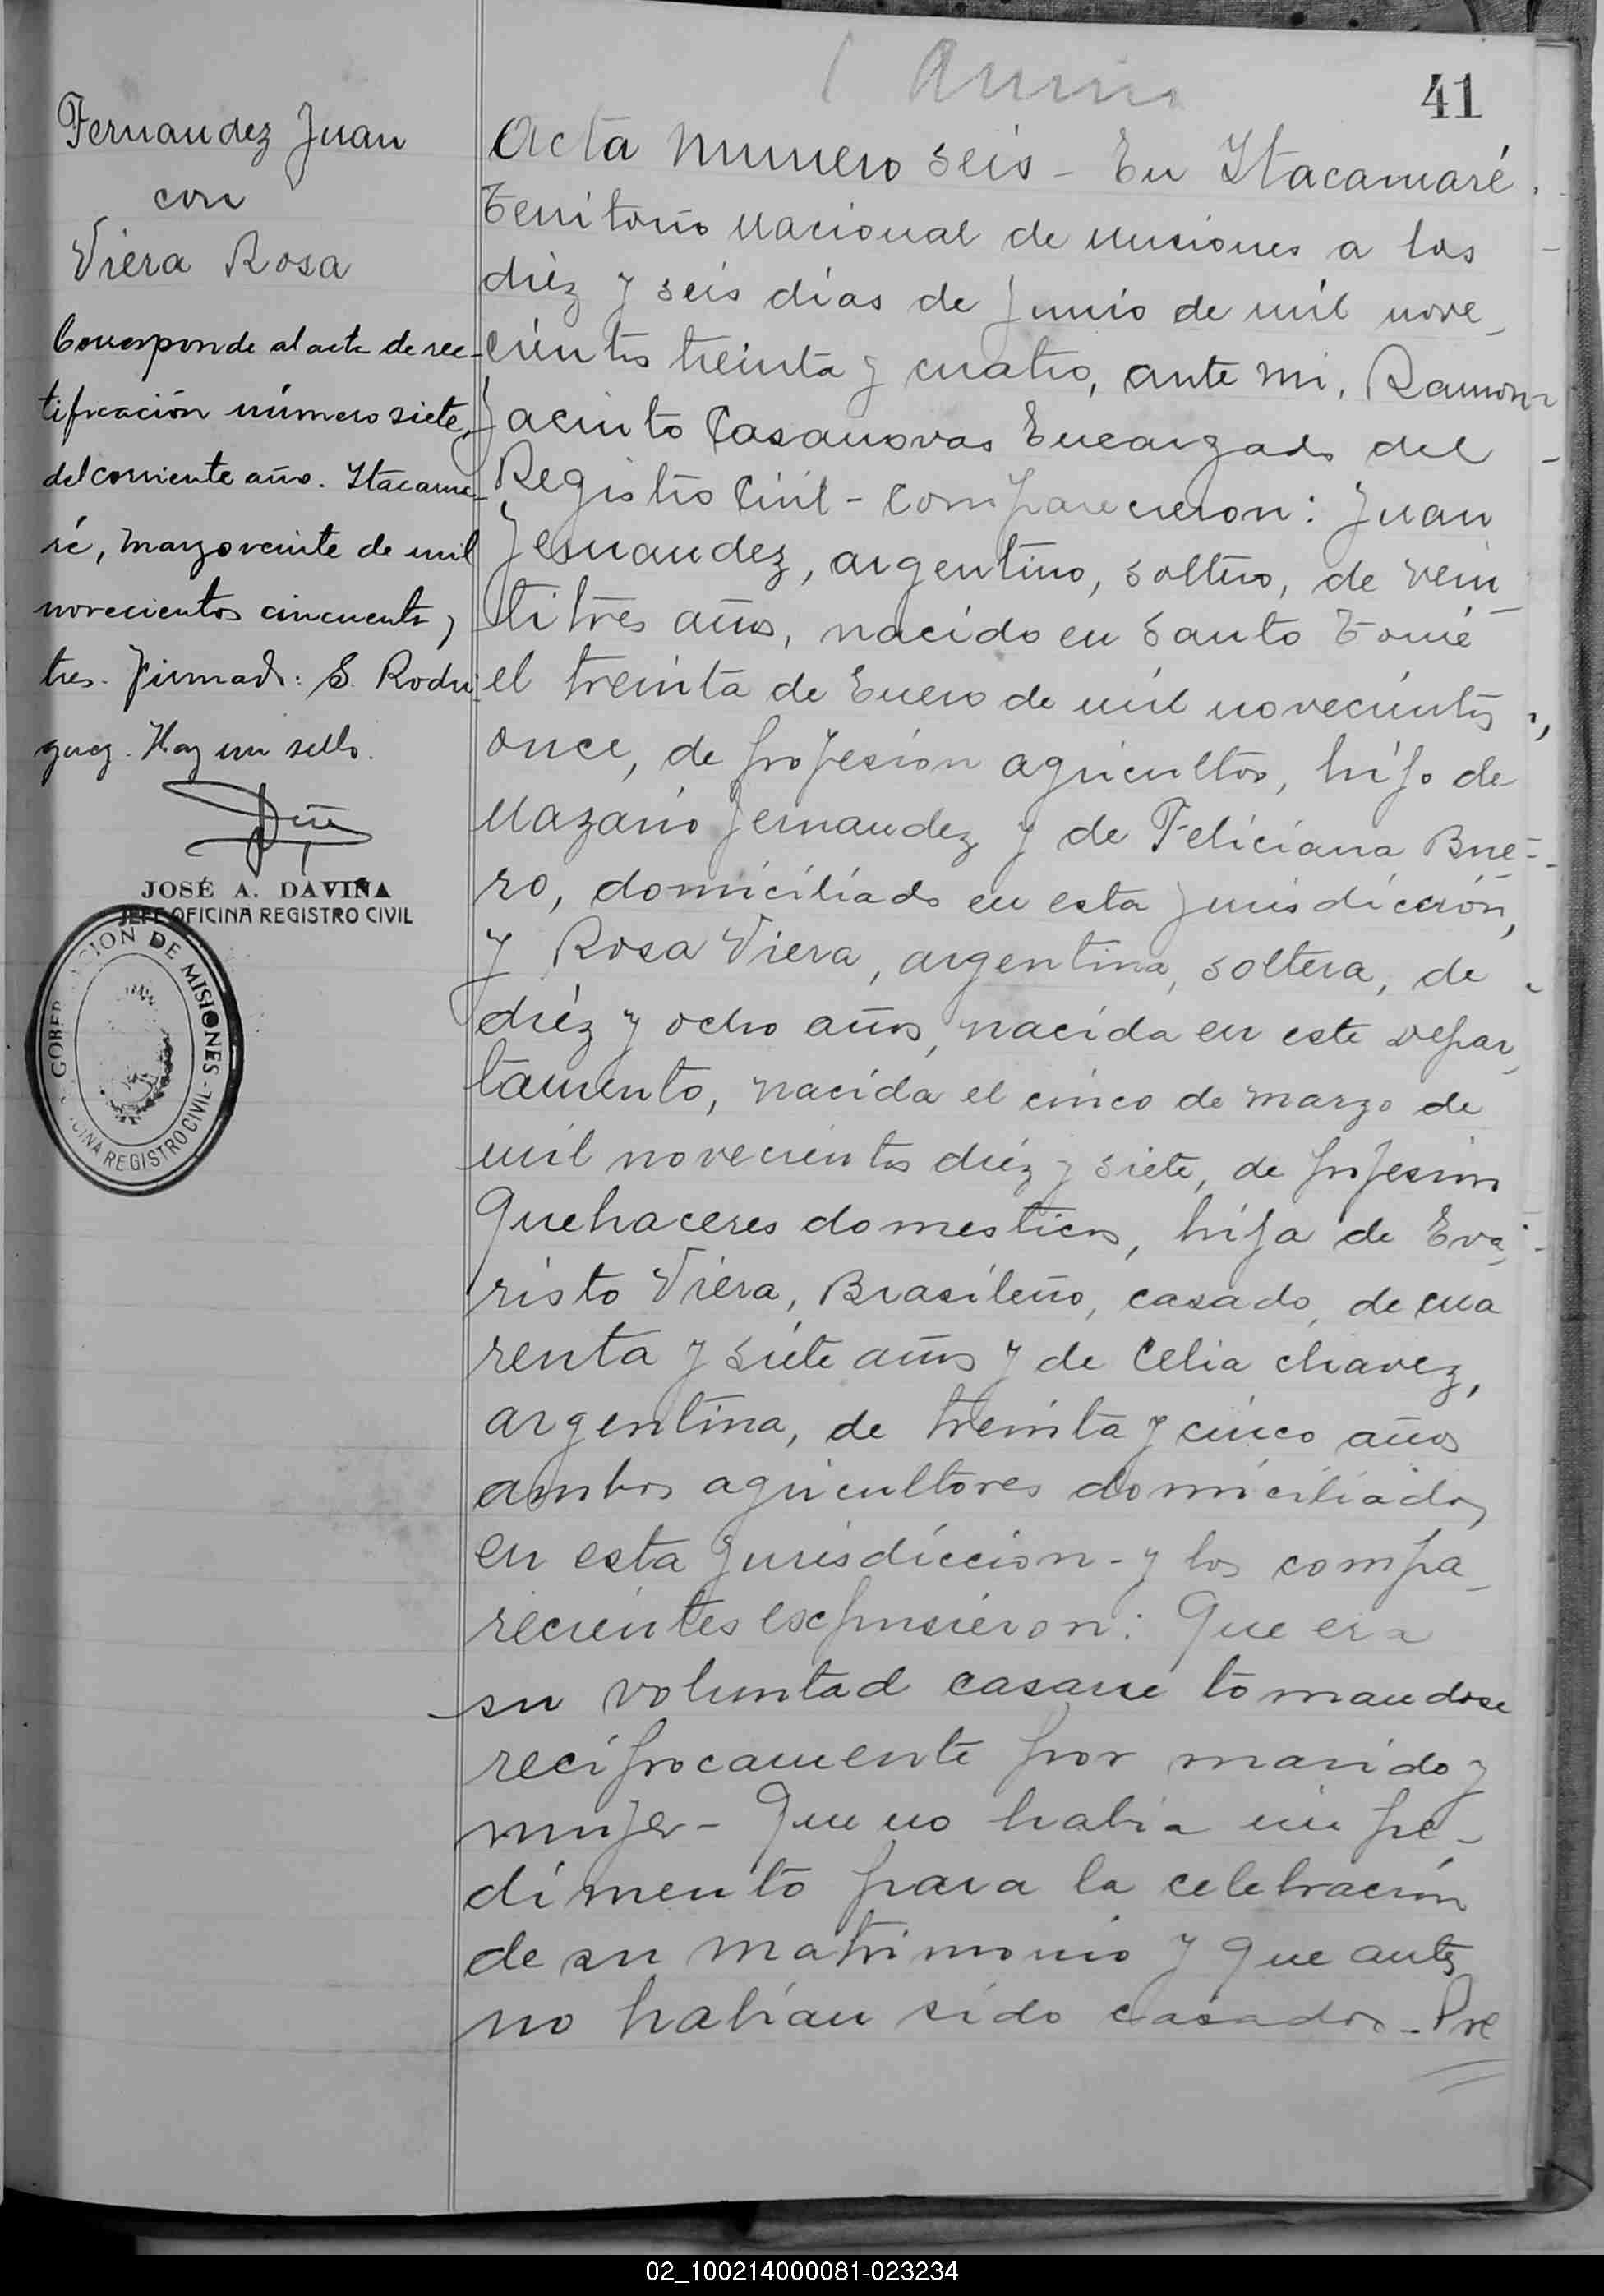 41
Fernandez Juan
con
Viera Rosa
Corresponde al acta de rec-
tificación número siete,
del corriente año. Itacama-
ré, marzo veinte de mil
novecientos cincuenta y
tres. Firmado: S. Rodri-
guez. Hay un sello.
JOSÉ A. DAVIÑA
JEFE OFICINA REGISTRO CIVIL
GOBERNACION DE MISIONES - OFICINA REGISTRO CIVIL -
Acta numero seis - En Itacamaré
Territorio Nacional de misiones a los
diéz y seis dias de Junio de mil nove-
cientos treinta y cuatro, ante mi, Ramon
Jacinto Casanovas Encargado del
Registro Civil - comparecieron: Juan
Fernandez, argentino, soltero, de vein
titres años, nacido en Santo Tomé
el treinta de Enero de mil novecientos
once, de profesion agricultor, hijo de
Nazario Fernandez y de Feliciana Bue-
ro, domiciliado en esta jurisdicción,
y Rosa Viera, argentina, soltera, de
diéz y ocho años, nacida en este depar
tamento, nacida el cinco de marzo de
mil novecientos diéz y siete, de profesion
Quehaceres domesticos, hija de Eva
risto Viera, Brasileño, casado, de cua
renta y siete años y de Celia chavez,
argentina, de treinta y cinco años
ambos agricultores domiciliados
en esta jurisdiccion - y los compa-
recientes expusieron: Que era
su voluntad casarse tomandose
reciprocamente por marido y
mujer - Que no habia impe-
dimento para la celebración
de su matrimonio y que antes
no habian sido casados - Pre
02_100214000081-023234